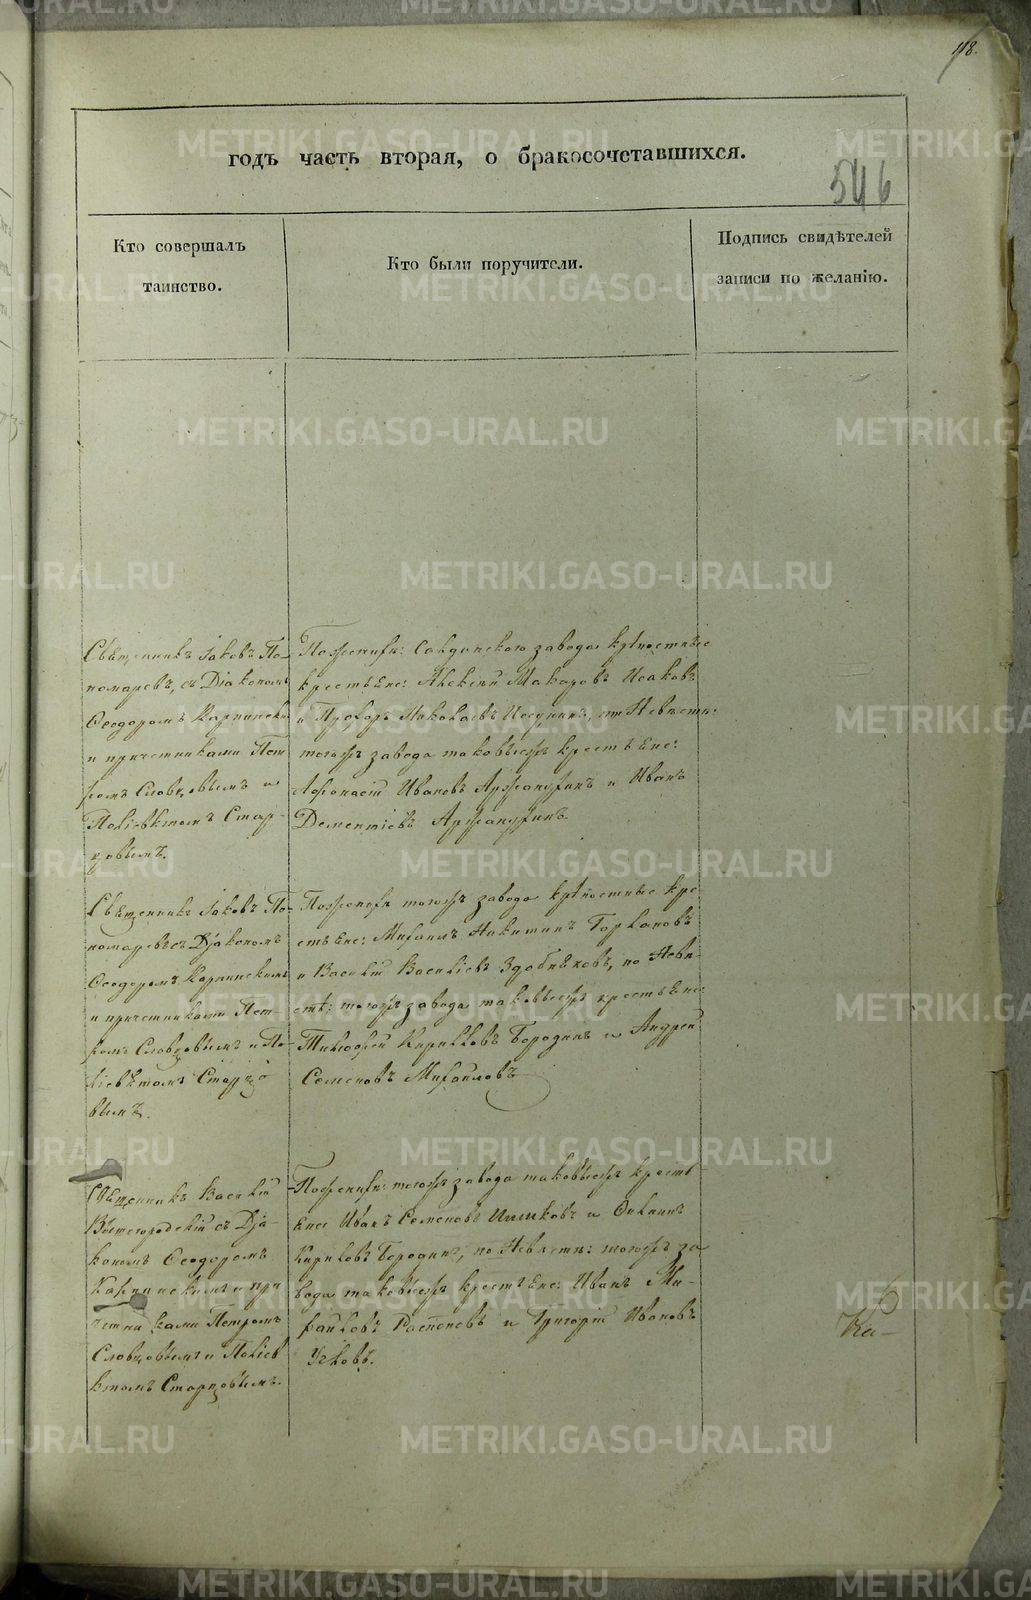 118.
годъ часть вторая, о бракосочетавшихся.
546
Кто совершалъ
таинство.
Кто были поручители.
Подпись свидѣтелей
записи по желанію.
Священникъ Іаковъ По-
номаревъ, съ Діакономъ
Ѳеодоромъ Карпинским
и причетниками Пет
ромъ Словцовымъ и
Поліевктомъ Стар-
цовымъ.
По женихѣ: Салдинского завода крѣпостные
крестьяне: Алексѣй Макаровъ Исаковъ
и Прохоръ Николаевъ по Невѣсть:
тогожъ завода таковыежъ крестьяне:
Афонасій Ивановъ и Иванъ
Дементіевъ
Священникъ Іаковъ По-
номаревъ съ Діакономъ
Ѳеодоромъ Карпинскимъ
и причетниками Пет-
ромъ Словцовымъ и По-
ліевктомъ Старцо
вымъ.
По женихѣ тогожъ завода крѣпостные кре-
стьяне: Михаилъ Никитинъ Горкановъ
и Василій Василіевъ Здобняковъ, по Невѣ-
стѣ: тогожъ завода таковыежъ крестьяне:
Тимофей Кириловъ Бородинъ и Андрей
Семеновъ Михаиловъ
Священникъ Василій
съ Діа-
кономъ Ѳеодоромъ
Карпинскимъ и при
четниками Петромъ
Словцовымъ и Поліев
ктомъ Старцовымъ.
По женихѣ: тогожъ завода таковыежъ кресть-
яне Иванъ Семеновъ и
Кириловъ Бородинъ, по Невѣсть: тогожъ за
вода таковыежъ крестьяне: Иванъ Ми-
хаиловъ и Григорій Ивановъ
METRIKI.GASO-URAL.RU